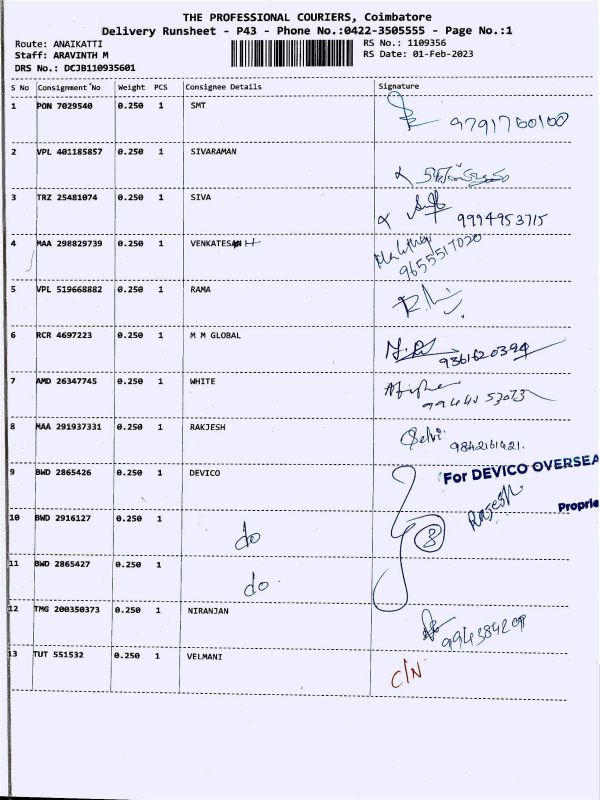 THE PROFESSIONAL COURIERS, Coimbatore
Delivery Runsheet - P43 - Phone No.:0422-3505555 - Page No.:1
Route: ANAIKATTI
Staff: ARAVINTH M
DRS No.: DCJB110935601
RS No.: 1109356
RS Date: 01-Feb-2023
S No Consignment No Weight PCS Consignee Details Signature
1 PON 7029540 0.250 1 SMT 9791760100
2 VPL 401185857 0.250 1 SIVARAMAN
3 TRZ 25481074 0.250 1 SIVA 9994953715
4 MAA 298829739 0.250 1 VENKATESAH H 9655517020
5 VPL 519668882 0.250 1 RAMA
6 RCR 4697223 0.250 1 M M GLOBAL 9361620394
7 AMD 26347745 0.250 1 WHITE 9944453073
8 MAA 291937331 0.250 1 RAKJESH Selvi 9842161421.
9 BWD 2865426 0.250 1 DEVICO For DEVICO OVERSEA
Rajesh
Proprie
10 BWD 2916127 0.250 1 do 8
11 BWD 2865427 0.250 1 do
12 TMG 200350373 0.250 1 NIRANJAN
13 TUT 551532 0.250 1 VELMANI C/N